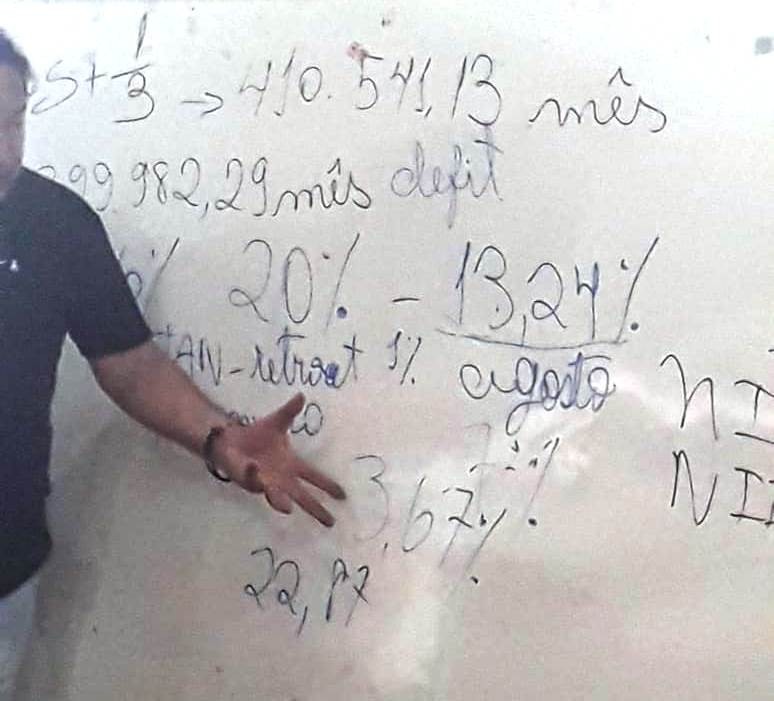 S + 1/3 → 410.541,13 mês
99.982,29 mês defit
% 20% - 13,24%
JAN - retroat 1% agosto
NI
3,67%
NI
22,87